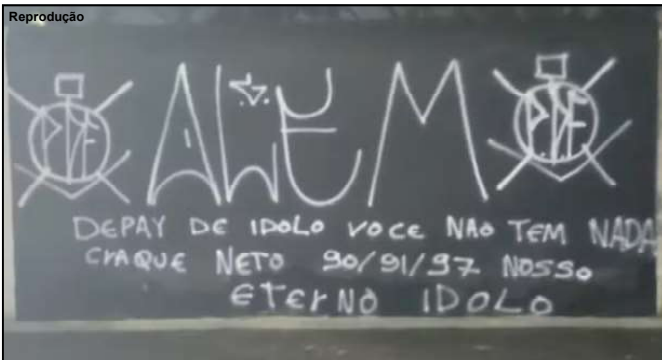 Reprodução
ALEM
DEPAY DE IDOLO VOCE NAO TEM NADA
CRAQUE NETO 90/91/97 NOSSO
ETERNO IDOLO